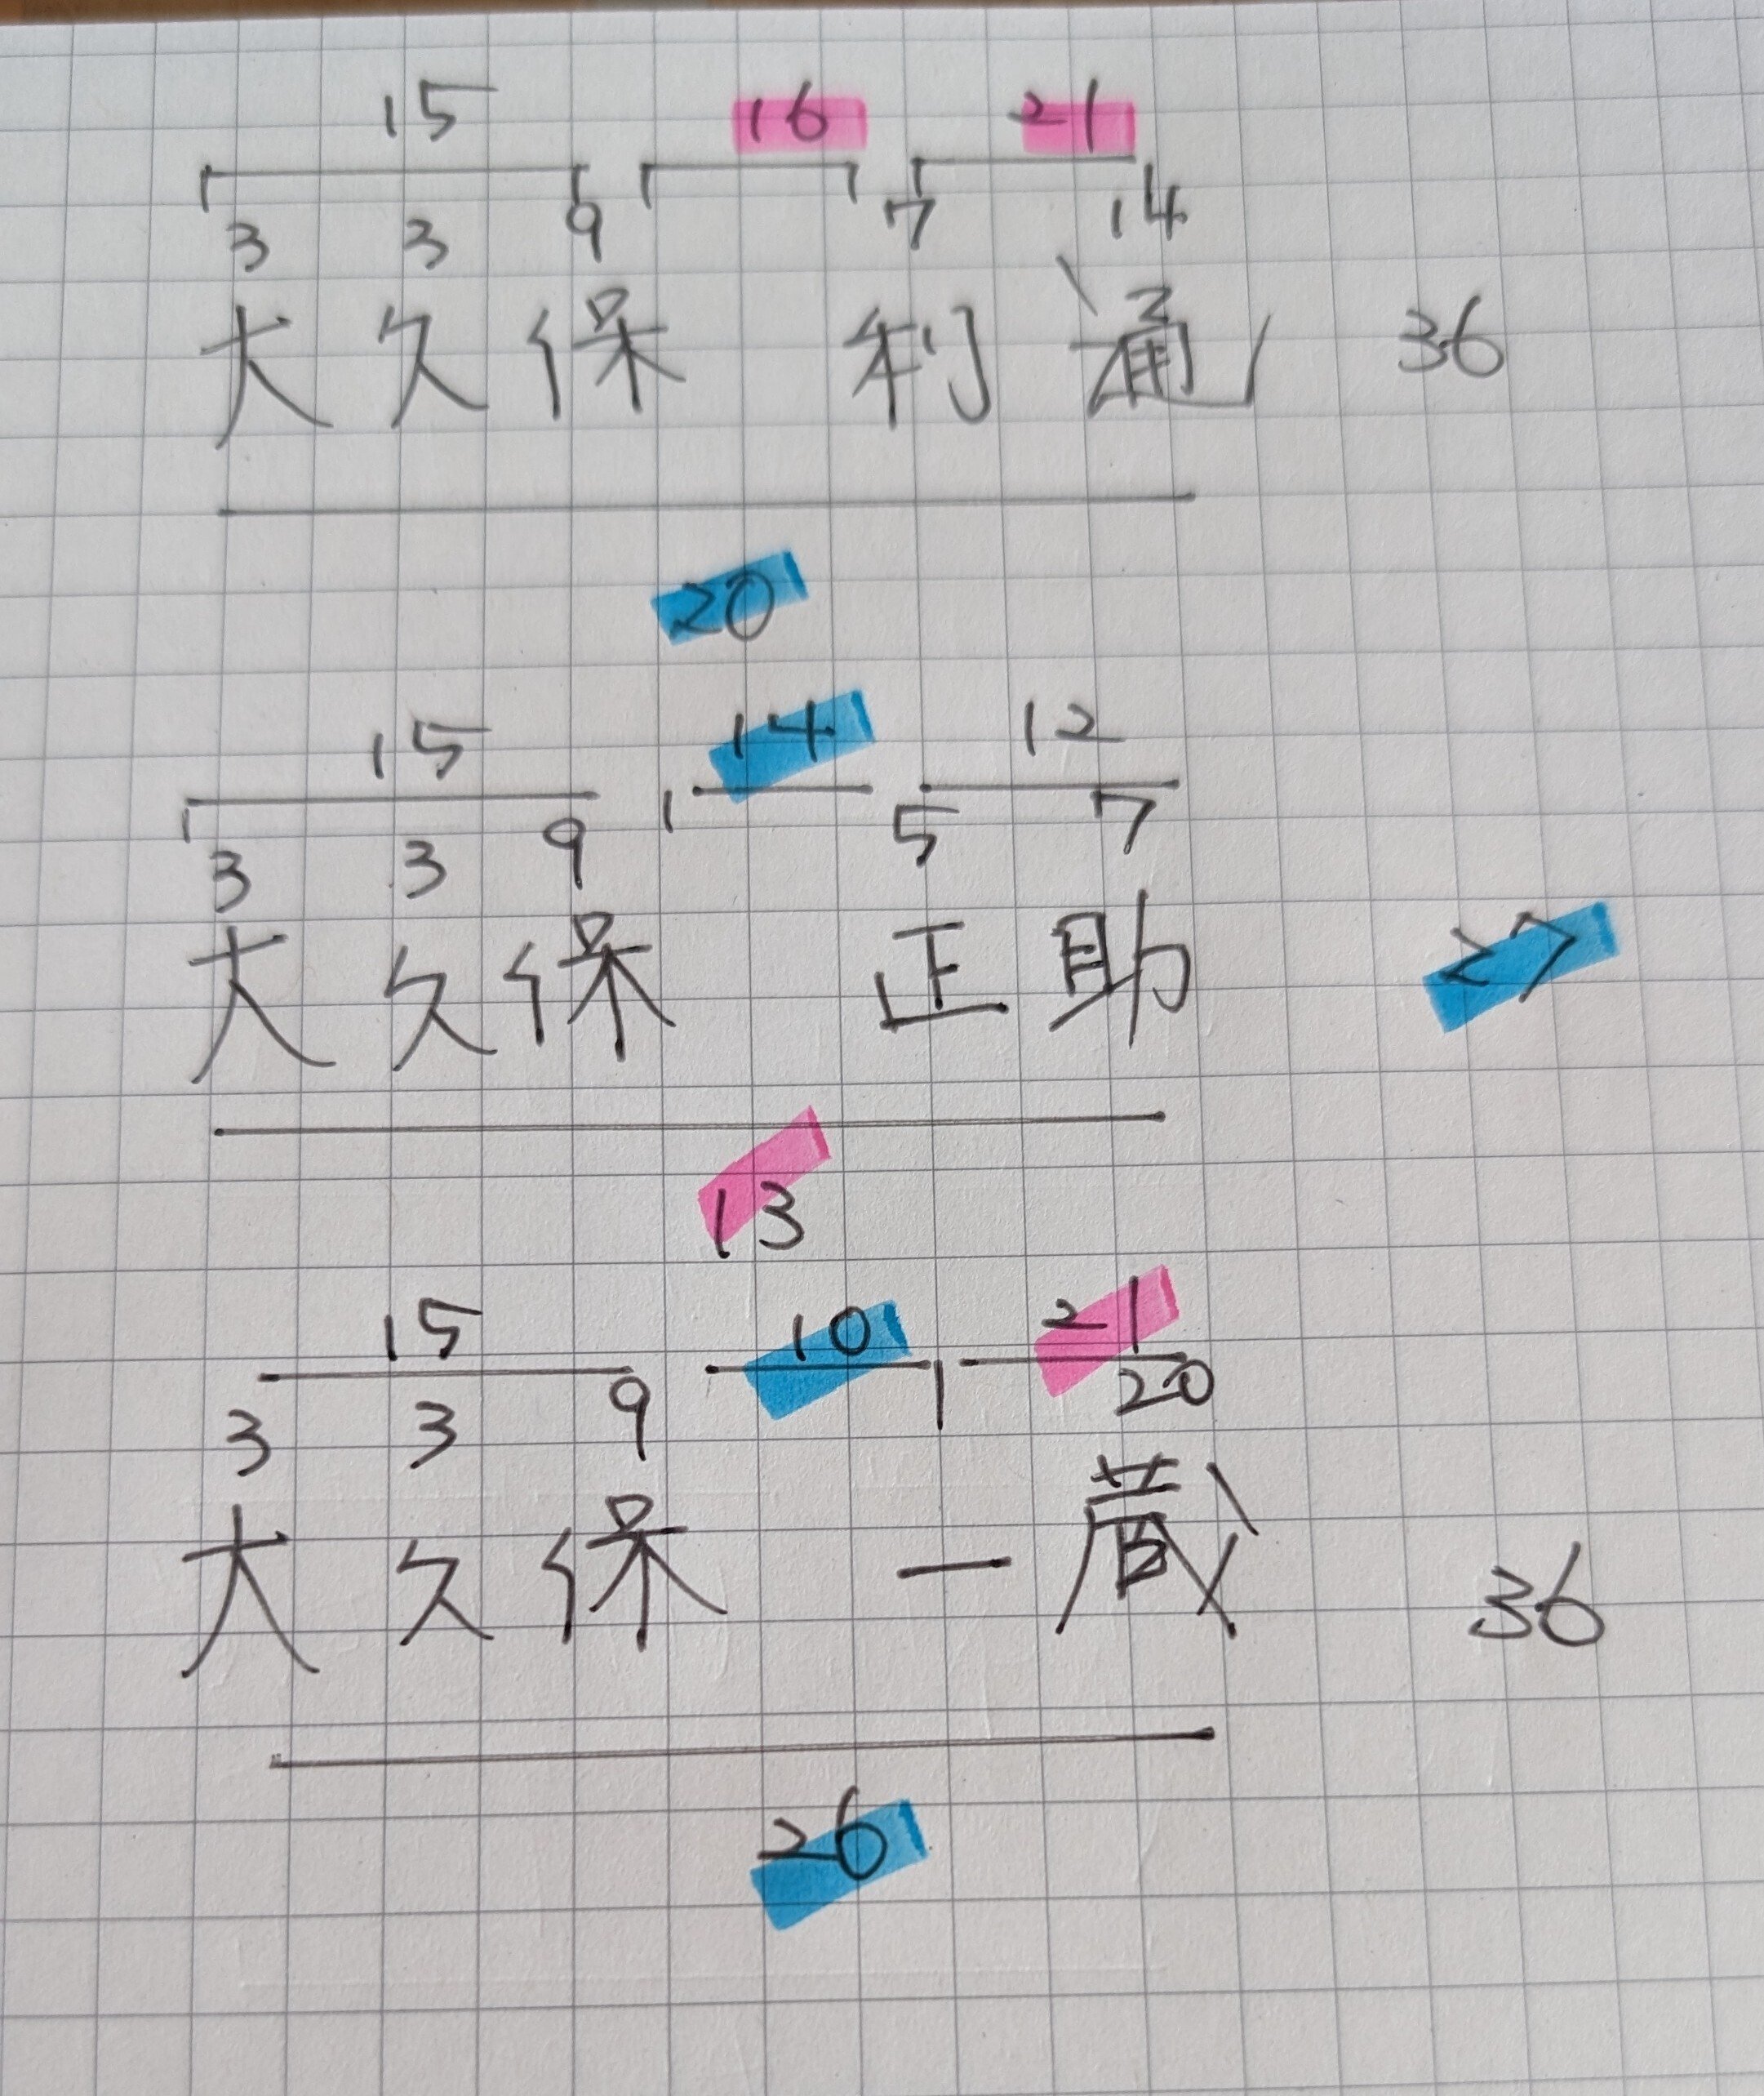 15 16 21
3 3 9 7 14
大久保 利通 36
20
15 14 12
3 3 9 5 7
大久保 正助 27
13
15 10 21
3 3 9 1 20
大久保 一蔵 36
26